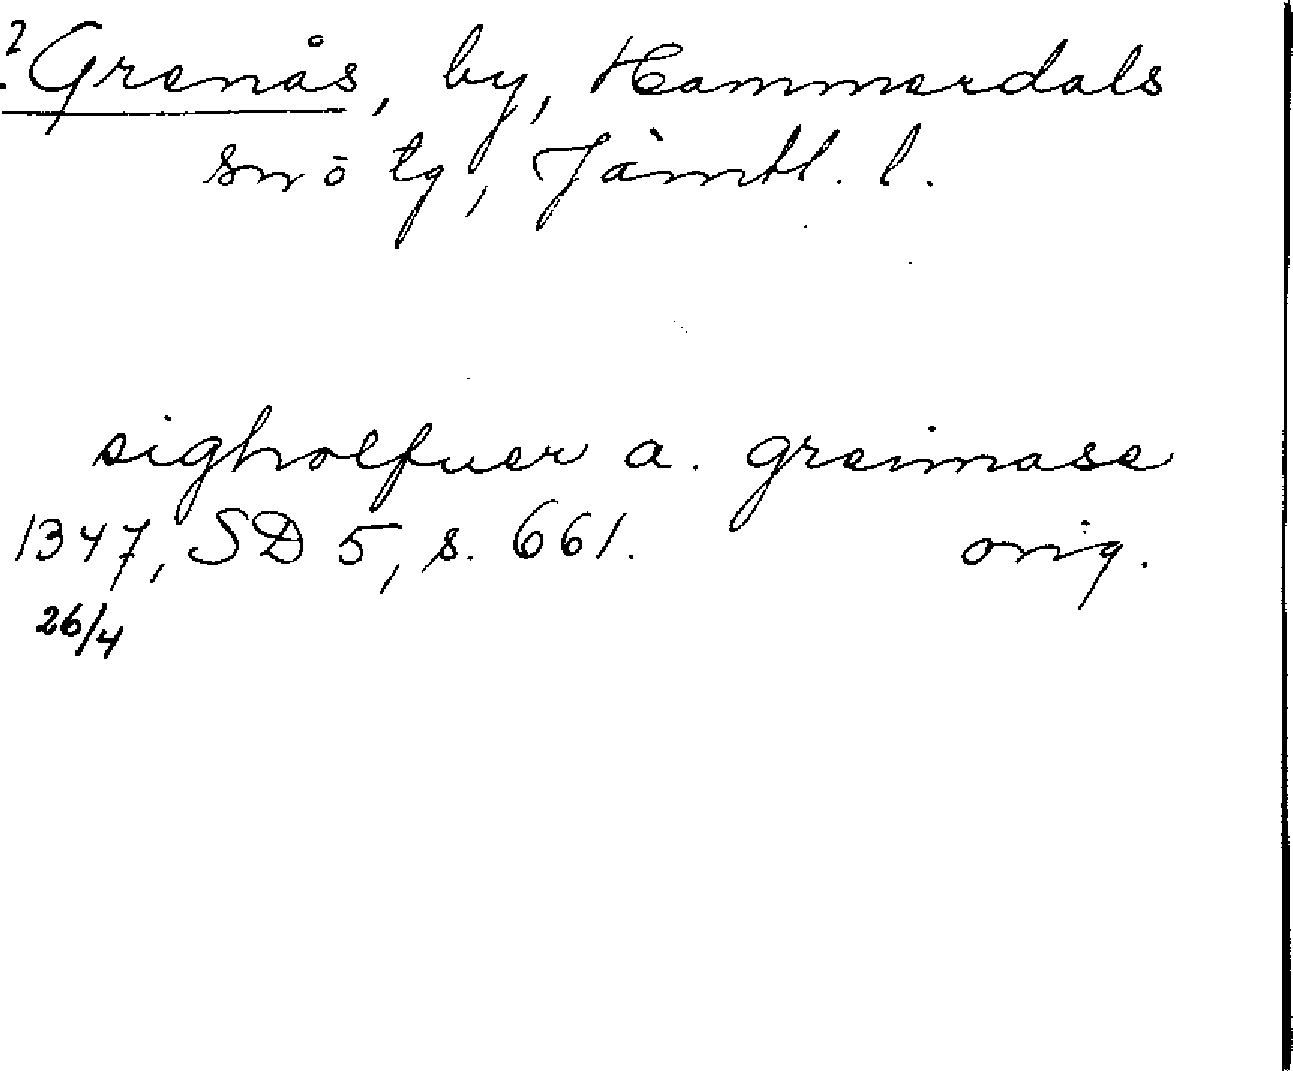 ? Grenås, by, Hammerdals
sn ō tg, Jämtl. l.
sigholfuer a. greimase
1347, SD 5, s. 661. orig.
26/4